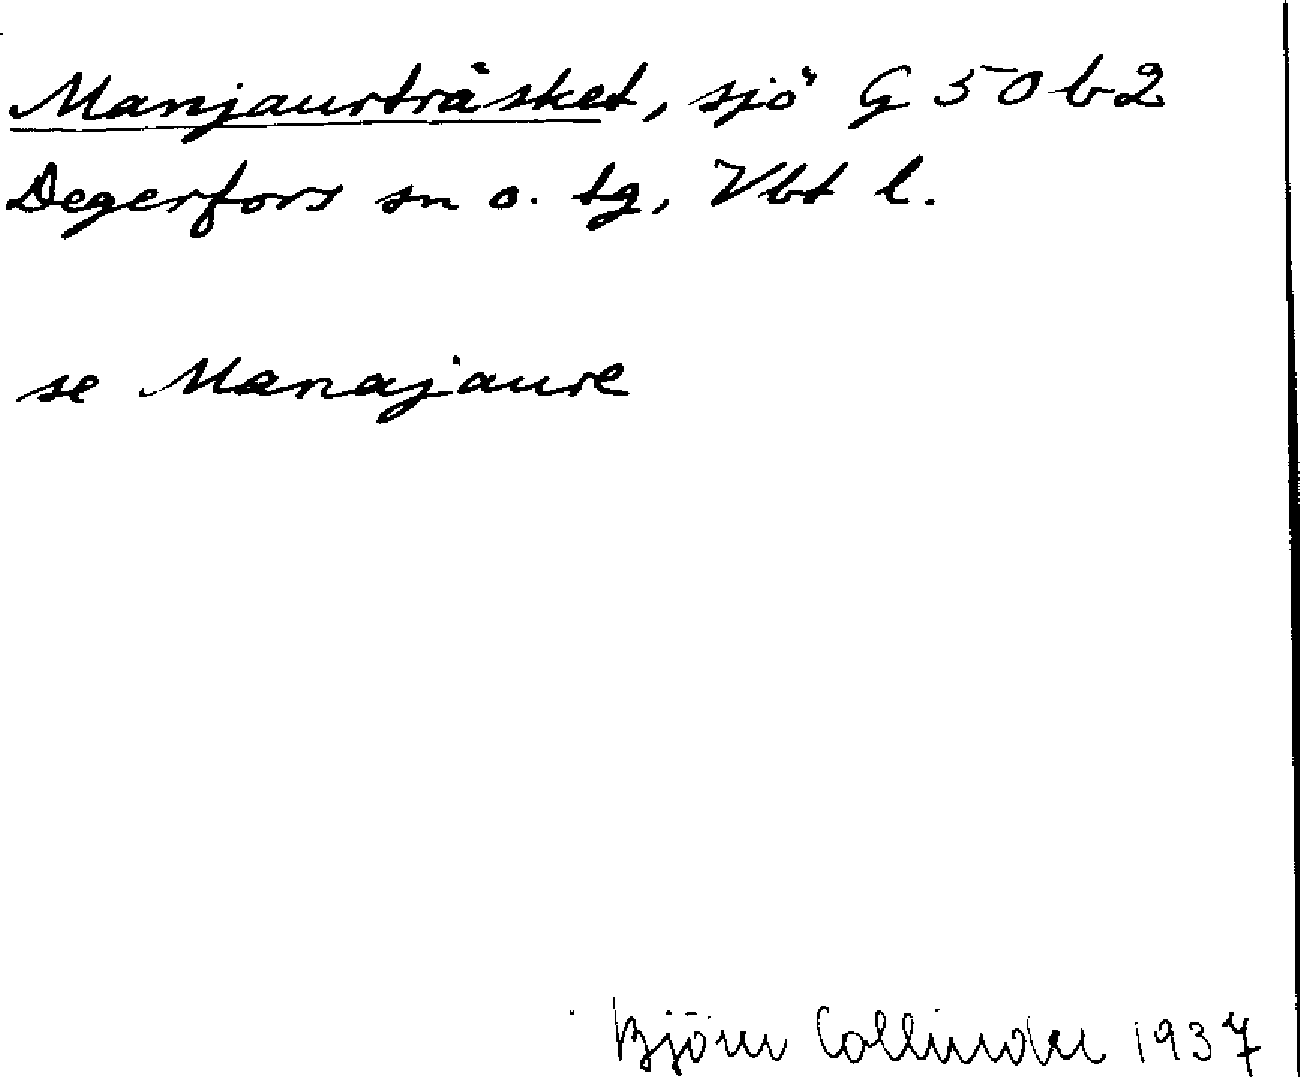 Manjaurträsket, sjö G 50 b2
Degerfors sn o. tg, Vbt l.
se Manajaure
Björn Collinder 1937